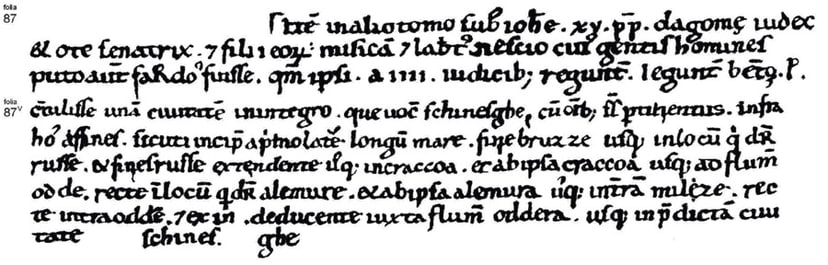 folia
87
Itē in alio tomo sub ioħe . xy . p̄p . dagomę iudex
& ote senatrix . ⁊ filii eoꝝ : misicā ⁊ lab̄t᾽ nescio cui gentis homines
puto aut̄ sardos fuisse . qm̄ ipsi . a IIII . iudicib; regunt̄ . leguntᷓ beat̄o . P .
folia
87v
c̄tulisse unā ciuitatē in integro . que uoc̄ schinesghe , cū om̄ib; suis ptinentiis . infra
ho᾽ affines . sicuti incipit a primo lat̄e . longū mare . fine bruzze usq; in locū q̄ dr̄
russe . & fines russe extendente usq; in craccoa . et ab ipsa craccoa usq; ad flum̄
odde . recte in locū q̄ dr̄ alemure . & ab ipsa alemura usq; in t̄ra milcze . rec
te intra oddē . ⁊ exin . deducente iuxta flum̄ oddera . usq; in p̄dictā ciui
tate schines . ghe